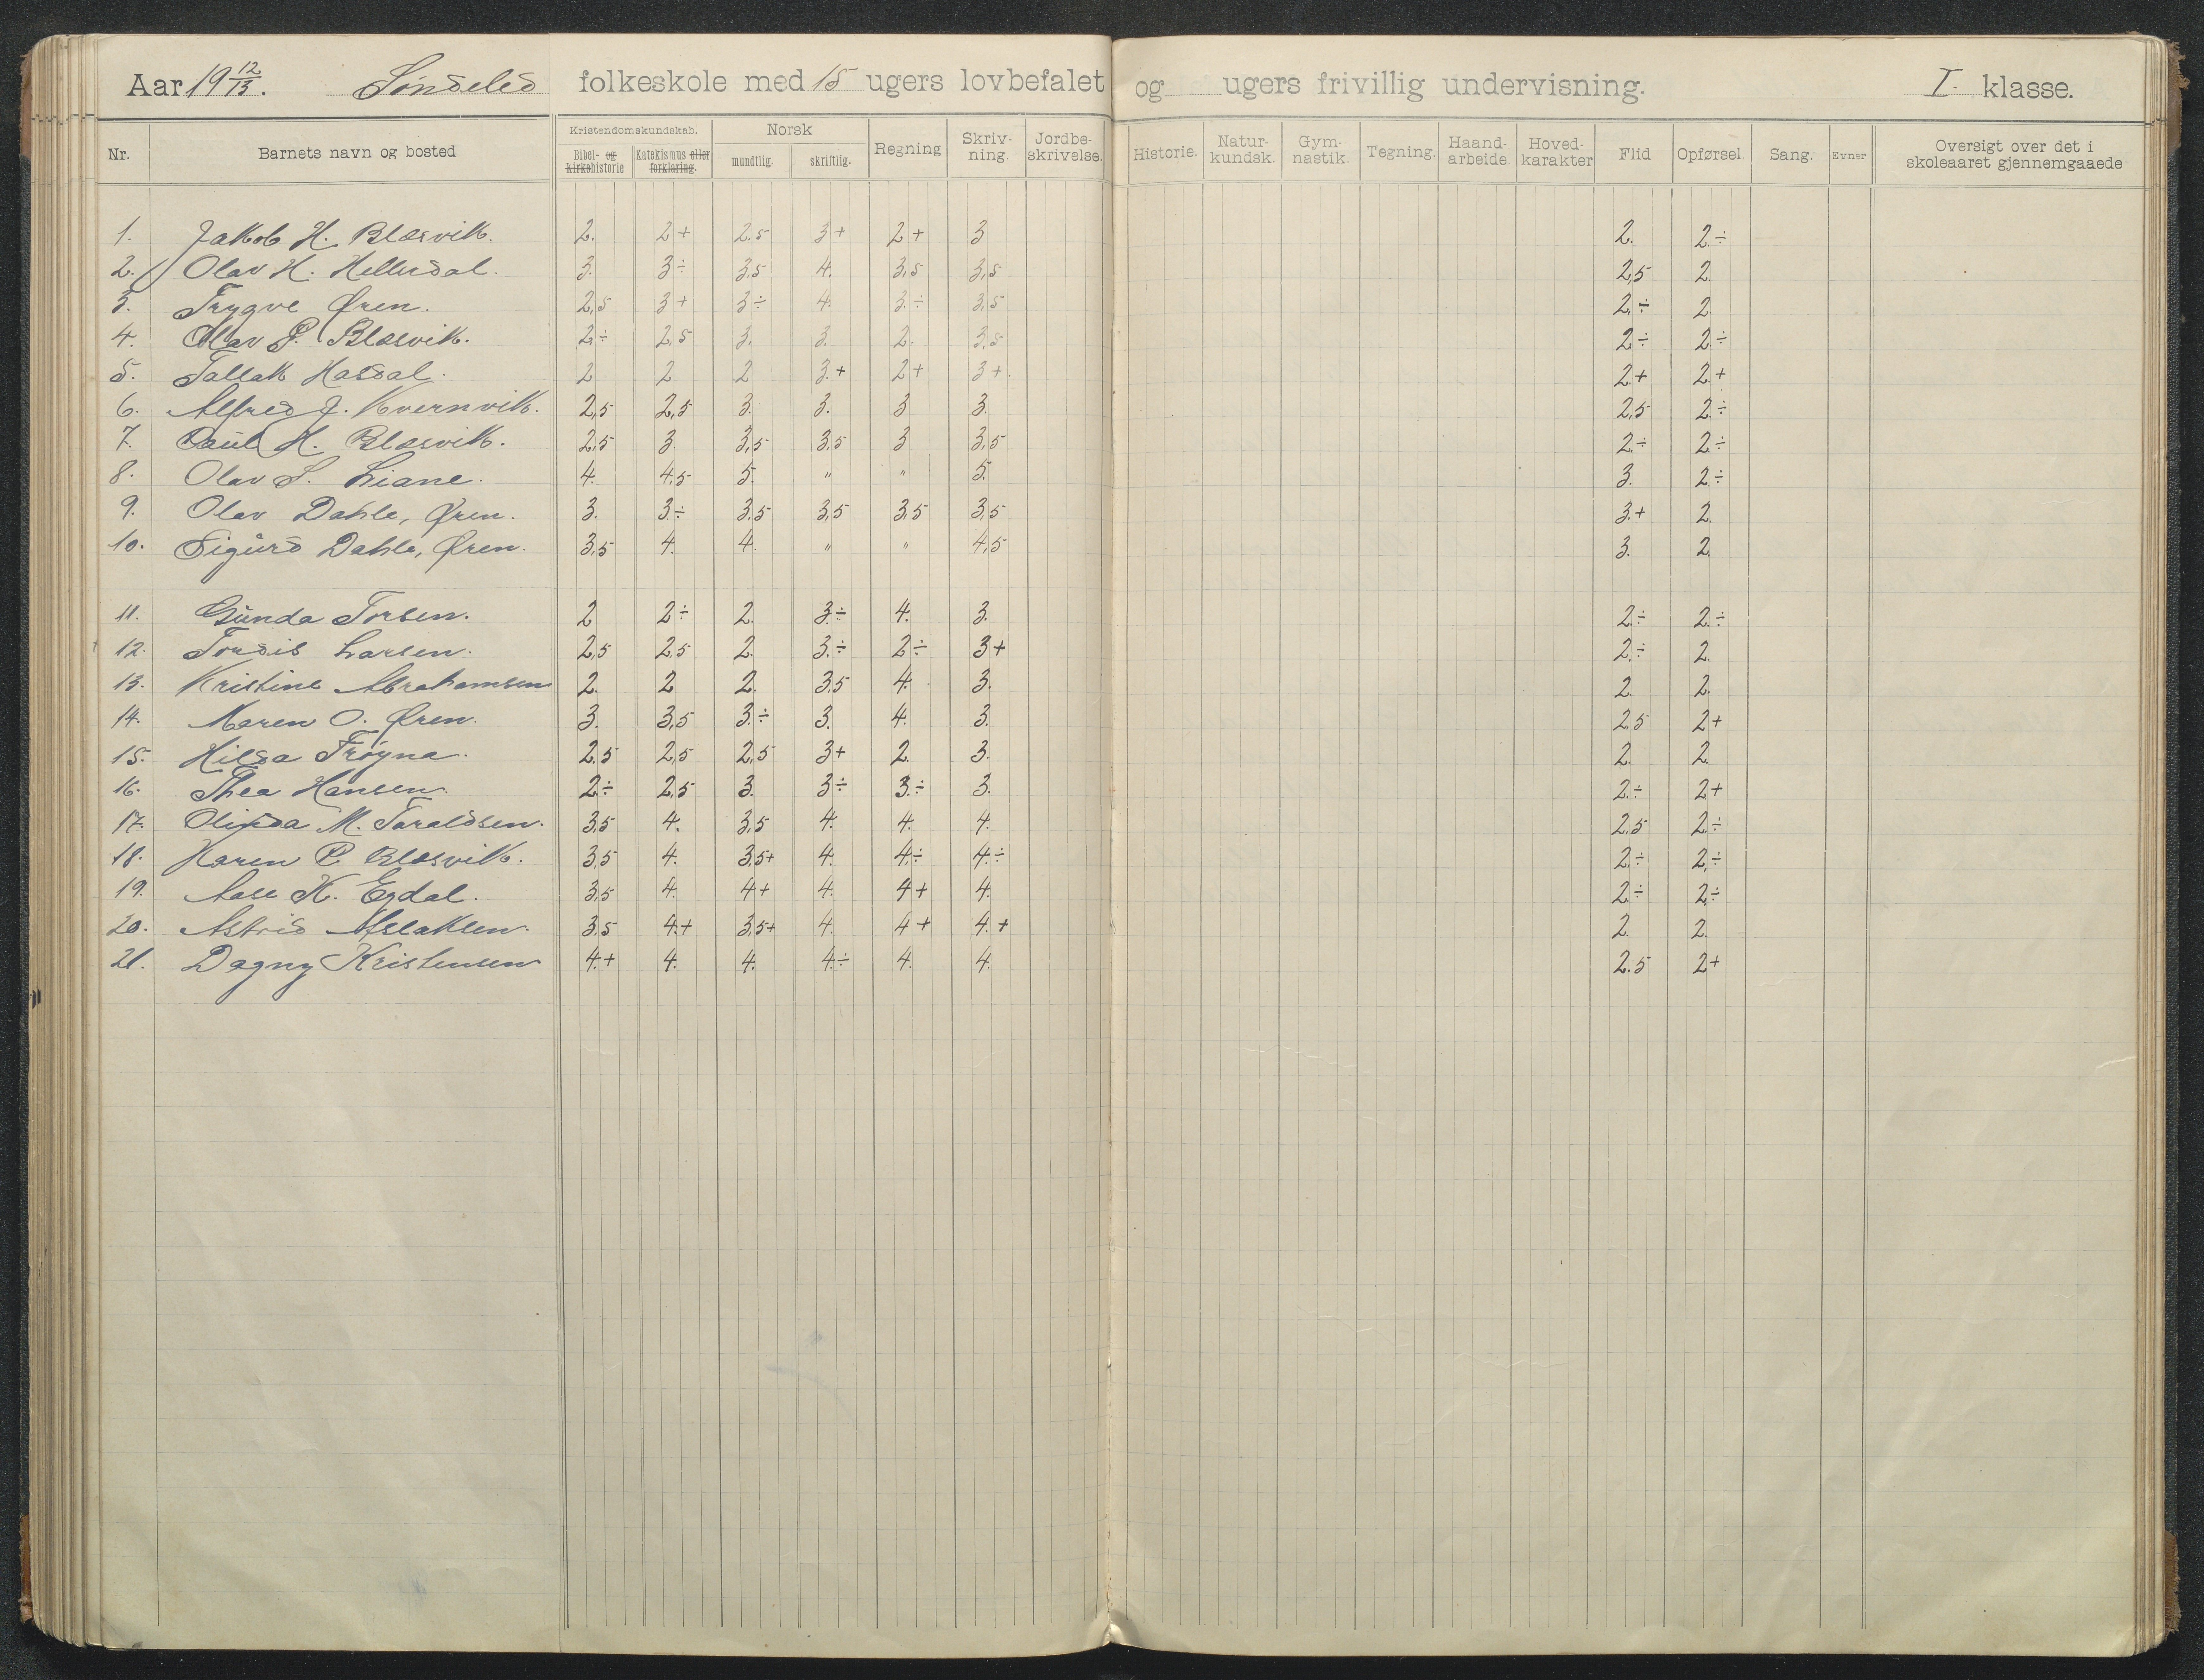 Aar 19 12/13. Søndeled folkeskole med 15 ugers lovbefalet og ugers frivillig undervisning. I. klasse.
Nr. Barnets navn og bosted Kristendomskundskab. Bibel- og kirkehistorie Katekismus eller forklaring. Norsk mundtlig. skriftlig. Regning Skrivning. Jordbeskrivelse. Historie. Naturkundsk. Gymnastik. Tegning. Haandarbeide. Hovedkarakter Flid Opførsel. Sang. Evner Oversigt over det i skoleaaret gjennemgaaede
1. Jakob H. Blæsvik. 2. 2+ 2.5 3+ 2+ 3 2. 2.÷
2. Olav H. Hellerdal. 3. 3÷ 3,5 4. 3,5 3,5 2,5 2.
3. Trygve Øren. 2,5 3+ 3÷ 4. 3.÷ 3,5 2.÷ 2.
4. Olav P. Blæsvik. 2.÷ 2,5 3. 3. 2. 3,5 2.÷ 2.÷
5. Tallak Hasdal. 2 2 2 3.+ 2+ 3+. 2.+ 2.+
6. Alfred J. Kvernvik. 2,5 2,5 3. 3. 3 3. 2,5 2.÷
7. Paul H. Blæsvik. 2,5 3 3,5 3,5 3 3,5 2.÷ 2.÷
8. Olav S. Liane. 4. 4,5 5. " " 5. 3. 2.÷
9. Olav Dahle, Øren. 3. 3.÷ 3.5 3,5 3,5 3,5 3.+ 2.
10. Sigurd Dahle, Øren. 3,5 4. 4. " " 4,5 3. 2.
11. Gunda Torsen. 2 2÷ 2. 3.÷ 4. 3. 2.÷ 2.÷
12. Tordis Larsen. 2,5 2,5 2. 3.÷ 2÷ 3+ 2.÷ 2.
13. Kristine Abrahamsen 2. 2 2. 3,5 4. 3. 2. 2.
14. Maren O. Øren. 3. 3,5 3.÷ 3. 4. 3. 2,5 2+
15. Hilda Trøgna. 2.5 2,5 2,5 3+ 2. 3. 2. 2.
16. Thea Hansen. 2.÷ 2,5 3. 3÷ 3.÷ 3. 2.÷ 2+
17. M. Taraldsen. 3,5 4. 3,5 4. 4. 4. 2,5 2.÷
18. Karen P. Blæsvik. 3,5 4. 3,5+ 4. 4.÷ 4.÷ 2.÷ 2.÷
19. Aase K. Egdal. 3,5 4. 4+ 4. 4+ 4. 2.÷ 2.÷
20. Astrid Aslaksen. 3.5 4.+ 3,5+ 4. 4+ 4.+ 2. 2.
21. Dagny Kristensen 4.+ 4. 4. 4.÷ 4. 4. 2.5 2+